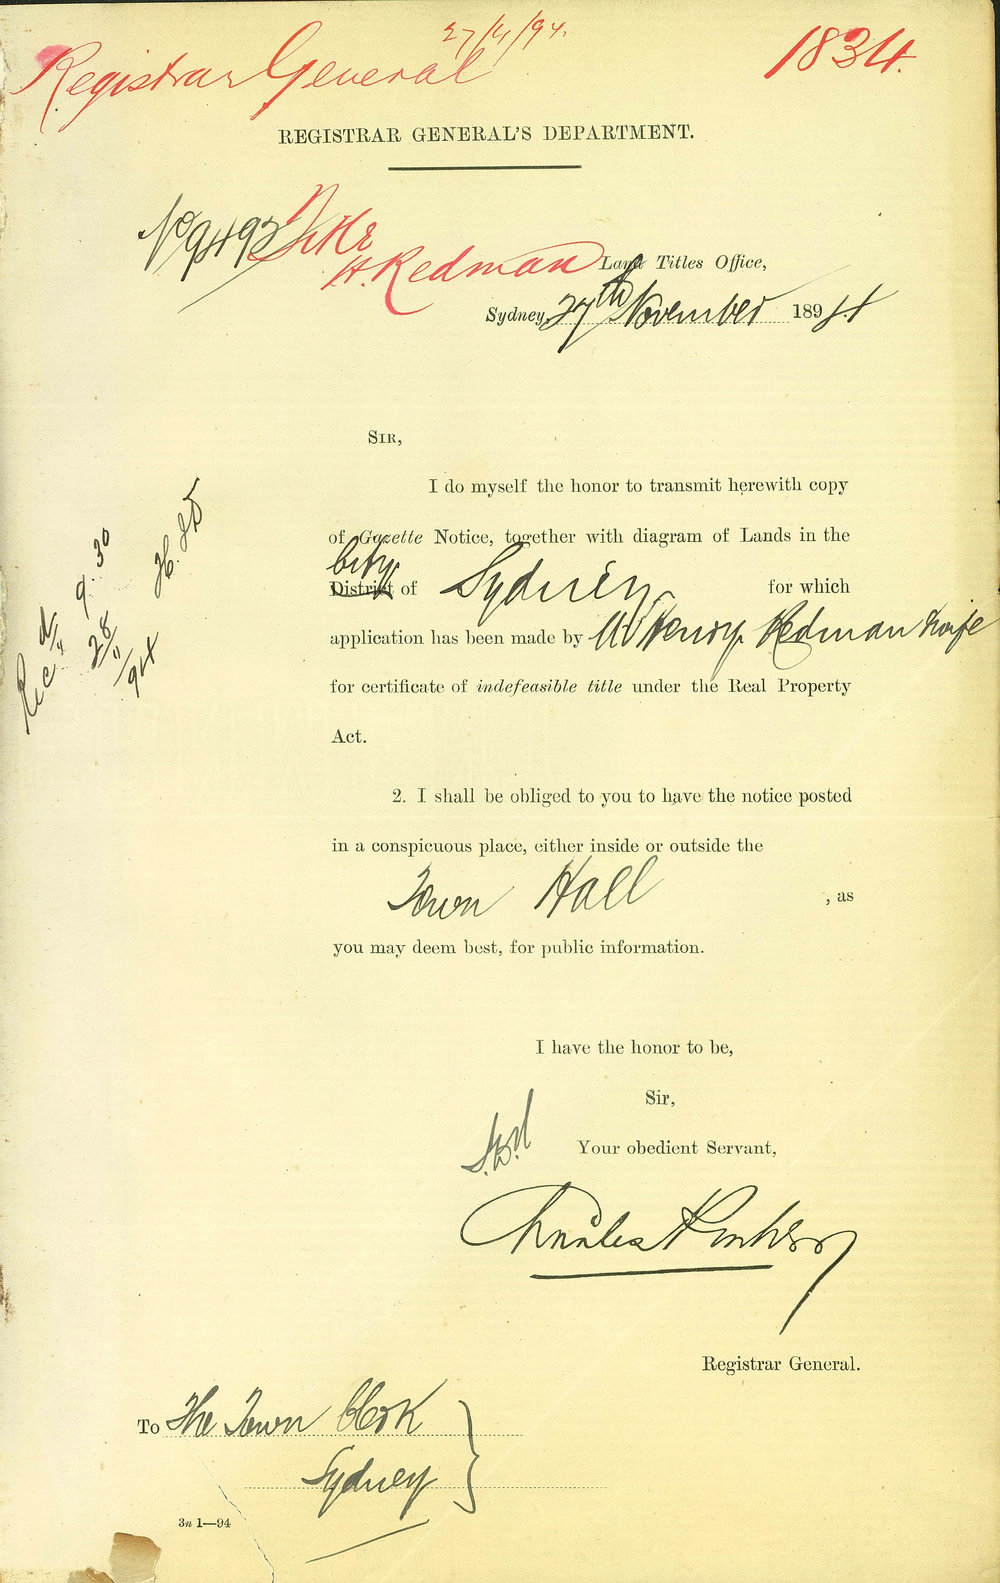 27/11/94.
Registrar General
1834.
REGISTRAR GENERAL'S DEPARTMENT.
No 9493
Title
H. Redman
Land Titles Office,
Sydney, 27th November 1894
SIR,
I do myself the honor to transmit herewith copy
of Gazette Notice, together with diagram of Lands in the
City
District of Sydney for which
application has been made by Wm Henry Redman & wife
for certificate of indefeasible title under the Real Property
Act.
2. I shall be obliged to you to have the notice posted
in a conspicuous place, either inside or outside the
Town Hall , as
you may deem best, for public information.
Recd 9.30
28/11/94
I have the honor to be,
Sir,
Your obedient Servant,
Charles
Registrar General.
To The Town Clerk
Sydney
3n 1—94